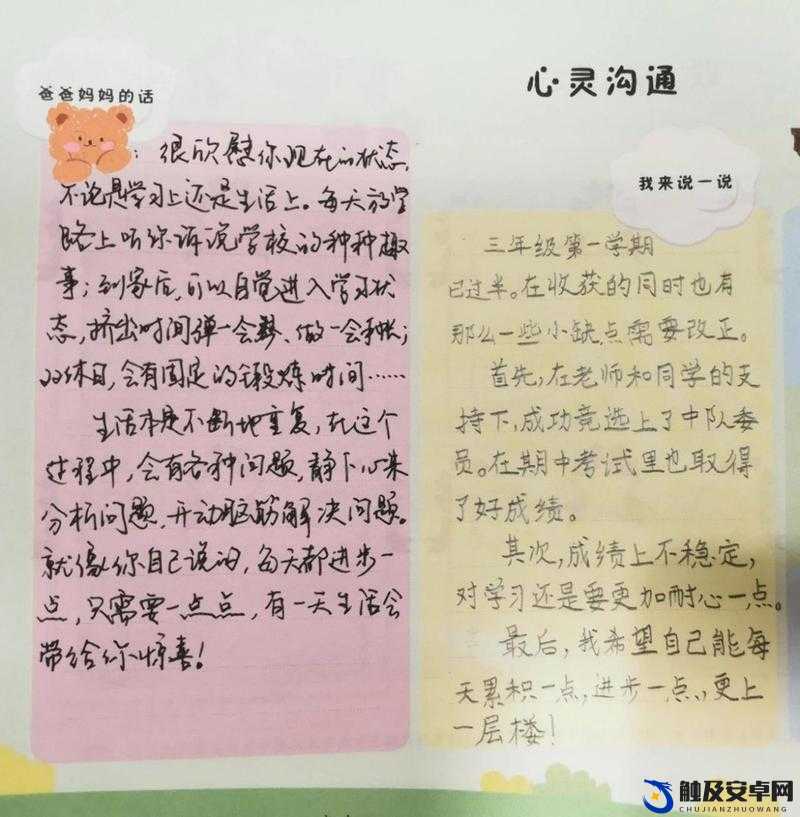 心灵沟通
爸爸妈妈的话
：很欣慰你现在的状态，
不论是学习上还是生活上。每天放学
路上听你诉说学校的种种趣
事；到家后，可以自觉进入学习状
态，挤出时间弹一会琴、做一会手帐；
双休日，会有固定的锻炼时间……
生活本是不断地重复，在这个
过程中，会有各种问题，静下心来
分析问题，开动脑筋解决问题。
就像你自己说的，每天都进步一
点，只需要一点点，有一天生活会
带给你惊喜！
我来说一说
三年级第一学期
已过半。在收获的同时也有
那么一些小缺点需要改正。
首先，在老师和同学的支
持下，成功竞选上了中队委
员。在期中考试里也取得
了好成绩。
其次，成绩上不稳定，
对学习还是要更加耐心一点。
最后，我希望自己能每
天累积一点，进步一点，更上
一层楼！
触及安卓网
CHUJIANZHUOWANG